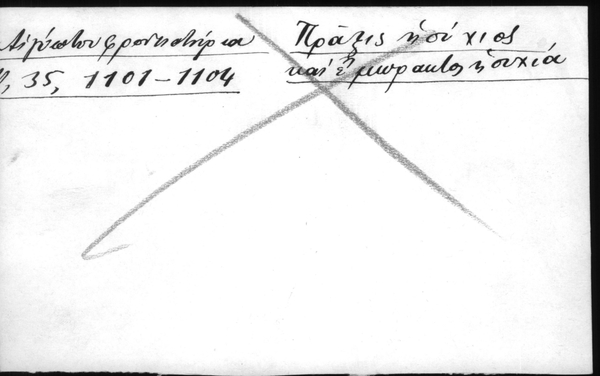 Αἰγύπτου φροντιστήρια
35, 1101-1104
Πρᾶξις ἡσύχιος
καὶ ἔμπρακτος ἡσυχία